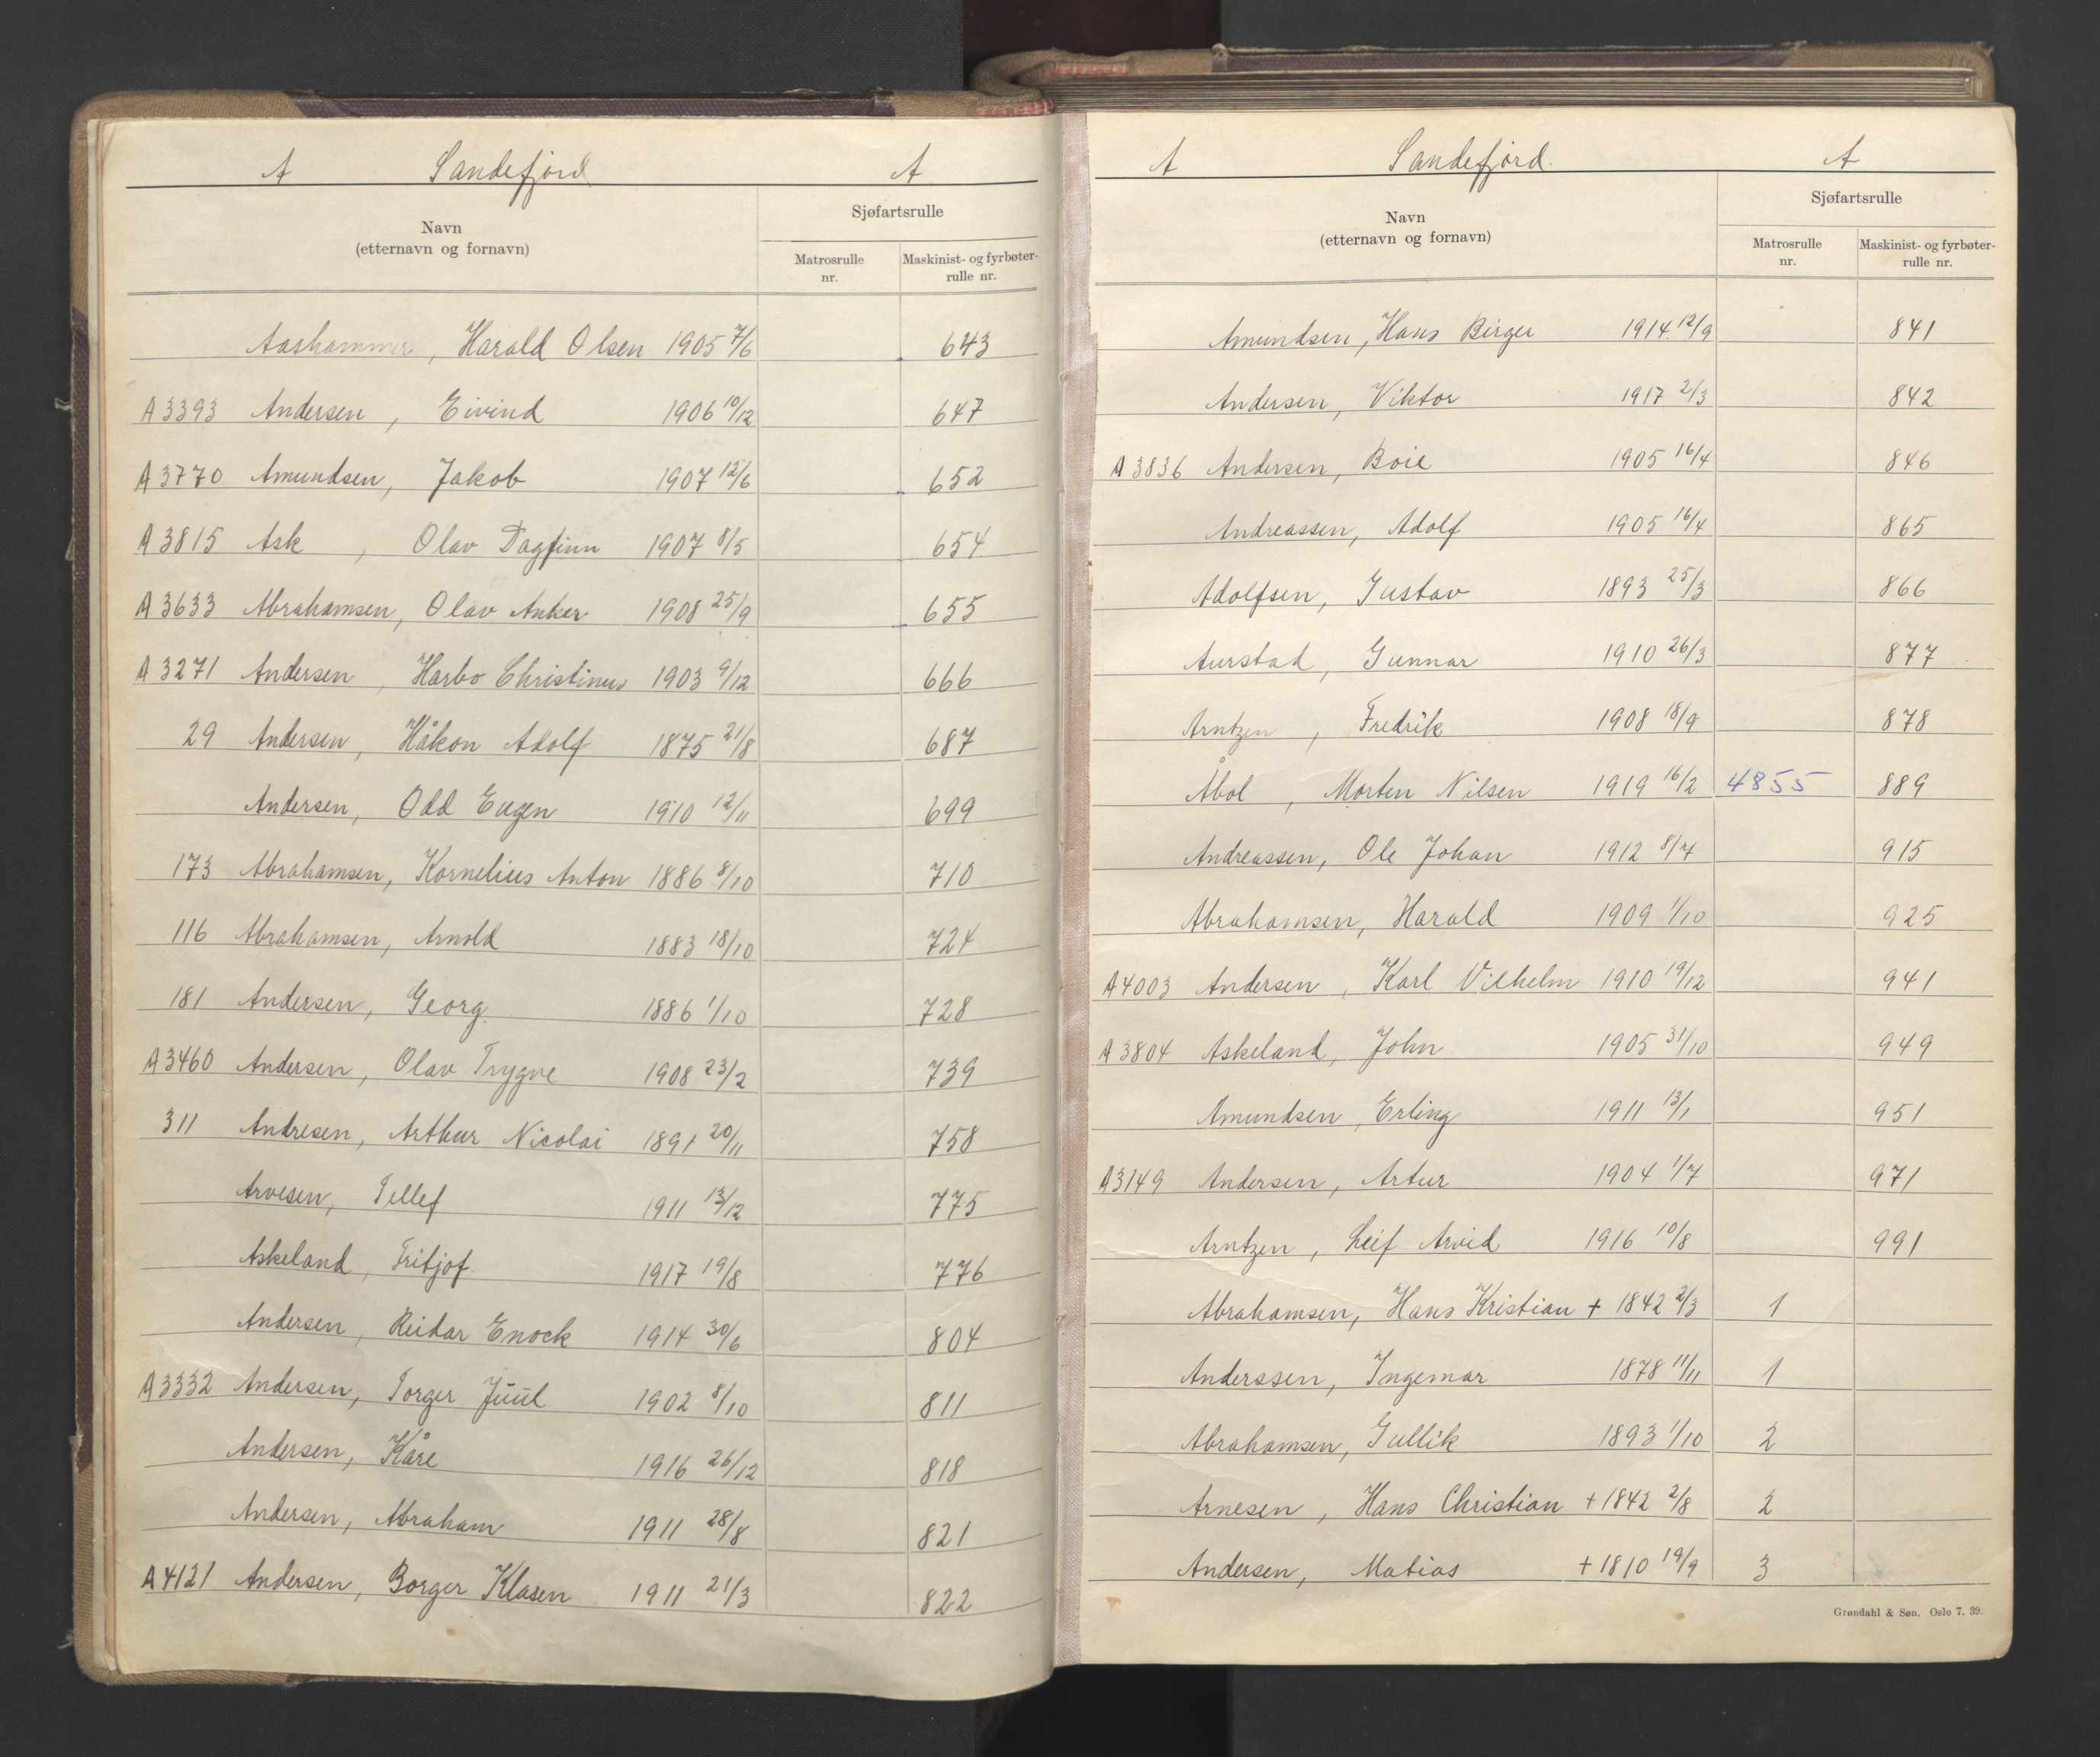 A Sandefjord A
Sjøfartsrulle
Navn
(etternavn og fornavn)
Matrosrulle nr.
Maskinist- og fyrbøter-rulle nr.
Aashammer, Harald Olsen 1905 7/6 643
A3393 Andersen, Eivind 1906 10/12 647
A3770 Amundsen, Jakob 1907 12/6 652
A3815 Ask, Olav Dagfinn 1907 8/5 654
A3633 Abrahamsen, Olav Anker 1908 25/9 655
A3271 Andersen, Harbo Christinus 1903 9/12 666
29 Andersen, Håkon Adolf 1875 21/8 687
Andersen, Odd Eugen 1910 12/11 699
173 Abrahamsen, Kornelius Anton 1886 8/10 710
116 Abrahamsen, Arnold 1883 18/10 724
181 Andersen, Georg 1886 1/10 728
A3460 Andersen, Olav Trygve 1908 23/2 739
311 Andresen, Arthur Nicolai 1891 20/11 758
Arvesen, Tellef 1911 13/12 775
Askeland, Fritjof 1917 19/8 776
Andersen, Reidar Enock 1914 30/6 804
A3332 Andersen, Torger Juul 1902 8/10 811
Andersen, Kåre 1916 26/12 818
Andersen, Abraham 1911 28/8 821
A4121 Andersen, Borger Klasen 1911 21/3 822
A Sandefjord. A
Sjøfartsrulle
Navn
(etternavn og fornavn)
Matrosrulle nr.
Maskinist- og fyrbøter-rulle nr.
Amundsen, Hans Birger 1914 12/9 841
Andersen, Viktor 1917 2/3 842
A3836 Andersen, Boie 1905 16/4 846
Andreassen, Adolf 1905 16/4 865
Adolfsen, Gustav 1893 25/3 866
Aurstad, Gunnar 1910 26/3 877
Arntzen, Fredrik 1908 18/9 878
Åbol, Morten Nilsen 1919 16/2 4855 889
Andreassen, Ole Johan 1912 8/7 915
Abrahamsen, Harald 1909 1/10 925
A4003 Andersen, Karl Vilhelm 1910 19/12 941
A3804 Askeland, John 1905 31/10 949
Amundsen, Erling 1911 13/1 951
A3149 Andersen, Artur 1904 1/7 971
Arntzen, Leif Arvid 1916 10/8 991
Abrahamsen, Hans Kristian + 1842 2/3 1
Anderssen, Ingemar 1878 11/11 1
Abrahamsen, Gullik 1893 1/10 2
Arnesen, Hans Christian + 1842 2/8 2
Andersen, Matias + 1810 19/9 3
Grøndahl & Søn. Oslo 7. 39.